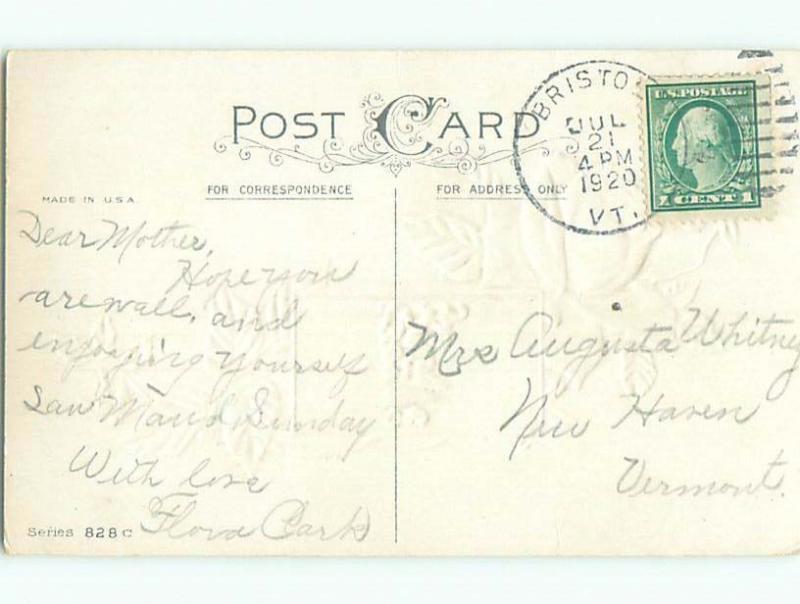 POST CARD
FOR CORRESPONDENCE
FOR ADDRESS ONLY
MADE IN U.S.A.
BRISTO
JUL
21
4 PM
1920
VT.
U.S. POSTAGE
1 CENT 1
Dear Mother,
Hope you
are well, and
enjoying yourself
Saw Maud Sunday
With love
Flora Clark
Mrs Augusta Whitney
New Haven
Vermont.
Series 828 C